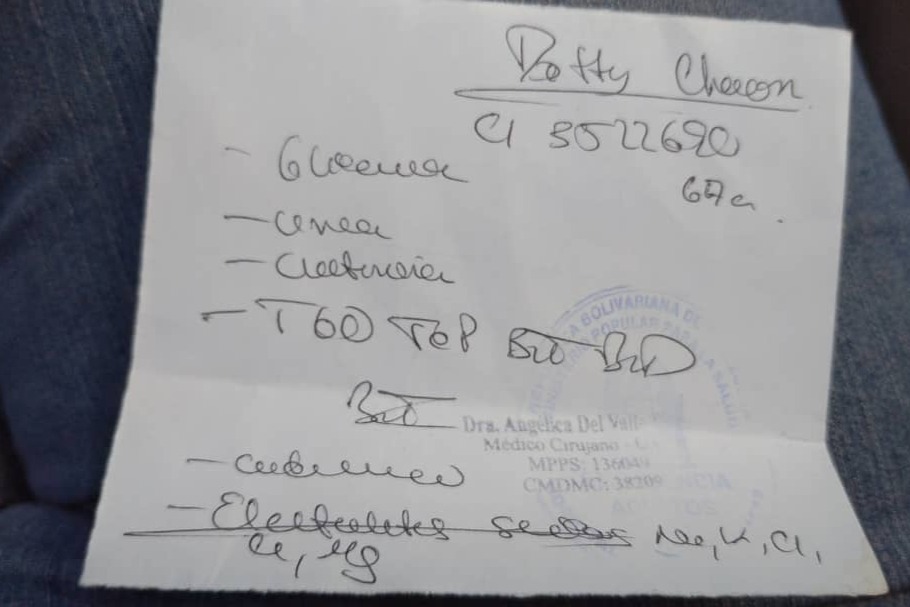 Betty Chacon
CI 3522690
67 a.
- Glicemia
- Urea
- Creatinina
- TGO TGP BT BD
BI
Dra. Angélica Del Vall
Médico Cirujano
MPPS: 136049
CMDMC: 38209
BOLIVARIANA DE
POPULAR PARA LA SALUD
- Electrolitos séricos Na, K, Cl,
Ca, Mg